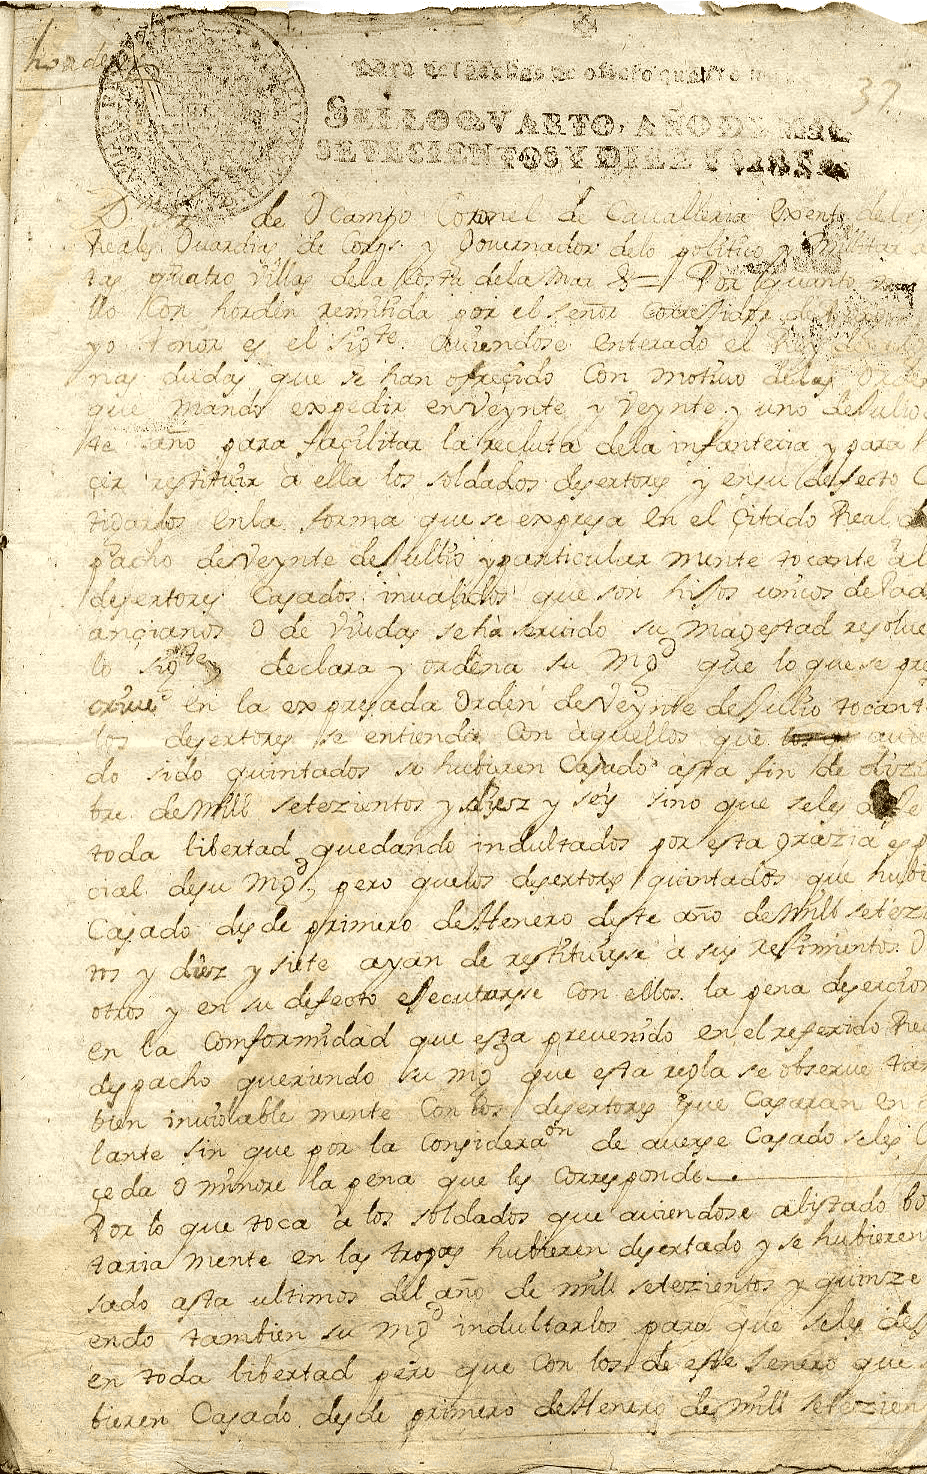 horden
37
Para despachos de oficio quatro mrs.
SELLO QVARTO, AÑO DE MIL
SETECIENTOS Y DIEZ Y SIETE
D. de Ocampo Coronel de Cavalleria Exento de las
Reales Guardias de Corps y Governador delo politico y Militar
tas quatro villas dela Costa dela Mar &= Por quanto
llo Con horden remitida por el señor Corregidor de
yo tenor es el sigte. Aviendose enterado el Rey de
nas dudas que se han ofreçido Con motivo delas Orden
que mando expedir en Veynte y Veynte y uno de Jullio
te año para façilitar la recluta dela infanteria y para
çer restituir à ella los soldados desertores y en su defecto
tigarlos en la forma que se expresa en el Çitado Real
pacho de Veynte de Jullio y particular mente tocante à l
desertores Casados, invalidos que son hijos unicos de Pad
ançianos O de Viudas se hà servido su Magestad resolve
lo sigte declara y ordena su Mgd que lo que se pre
crive en la expresada Orden de Veynte de Jullio tocant
los desertores se entienda Con àquellos que avie
do sido quintados se hubieren Casado asta fin de dizi
bre de Mill setezientos y diez y seys sino que seles de
toda libertad quedando indultados por esta grazia esp
cial de su Mgd, pero quelos desertores quintados que hubi
Casado desde primero de Henero deste año de Mill setezi
tos y diez y siete ayan de restituirse à sus rejimientos O
otros y en su defecto ejecutarse Con ellos la pena deserçion
en la Comformidad que esta prevenido en el referido Rea
despacho queriendo su Mgd que esta regla se observe tan
bien inviolable mente Con los desertores que Casaran en
lante sin que por la Consideraon de averse Casado seles
çeda O minore la pena que les Corresponde
Por lo que toca à los soldados que aviendose alistado bo
taria mente en las tropas hubieren desertado y se hubieren
sado asta ultimos del año de mill setezientos y quinze
endo tambien su Mgd indultarlos para que seles de
en toda libertad pero que Con los de este Jenero que
bieren Casado desde primero de Henero de Mill setezien